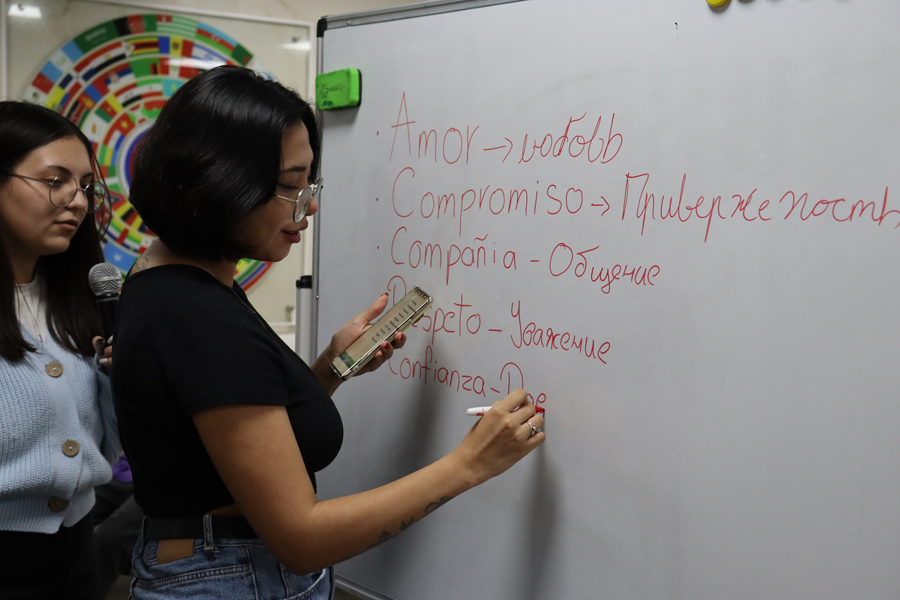 · Amor → любовь
· Compromiso → Приверженость
· Compañia - Общение
Respeto - Уважение
Confianza - Дов